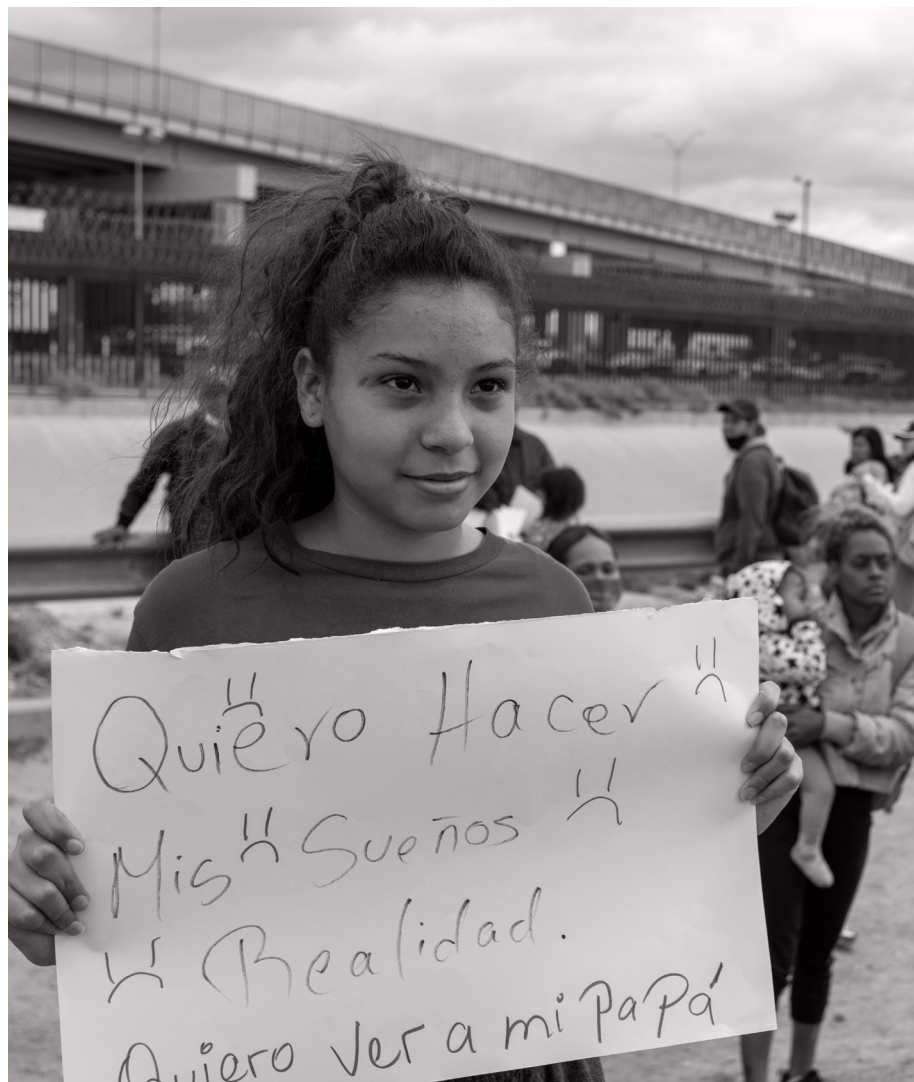 Quiero Hacer
Mis Sueños
Realidad.
Quiero ver a mi papá